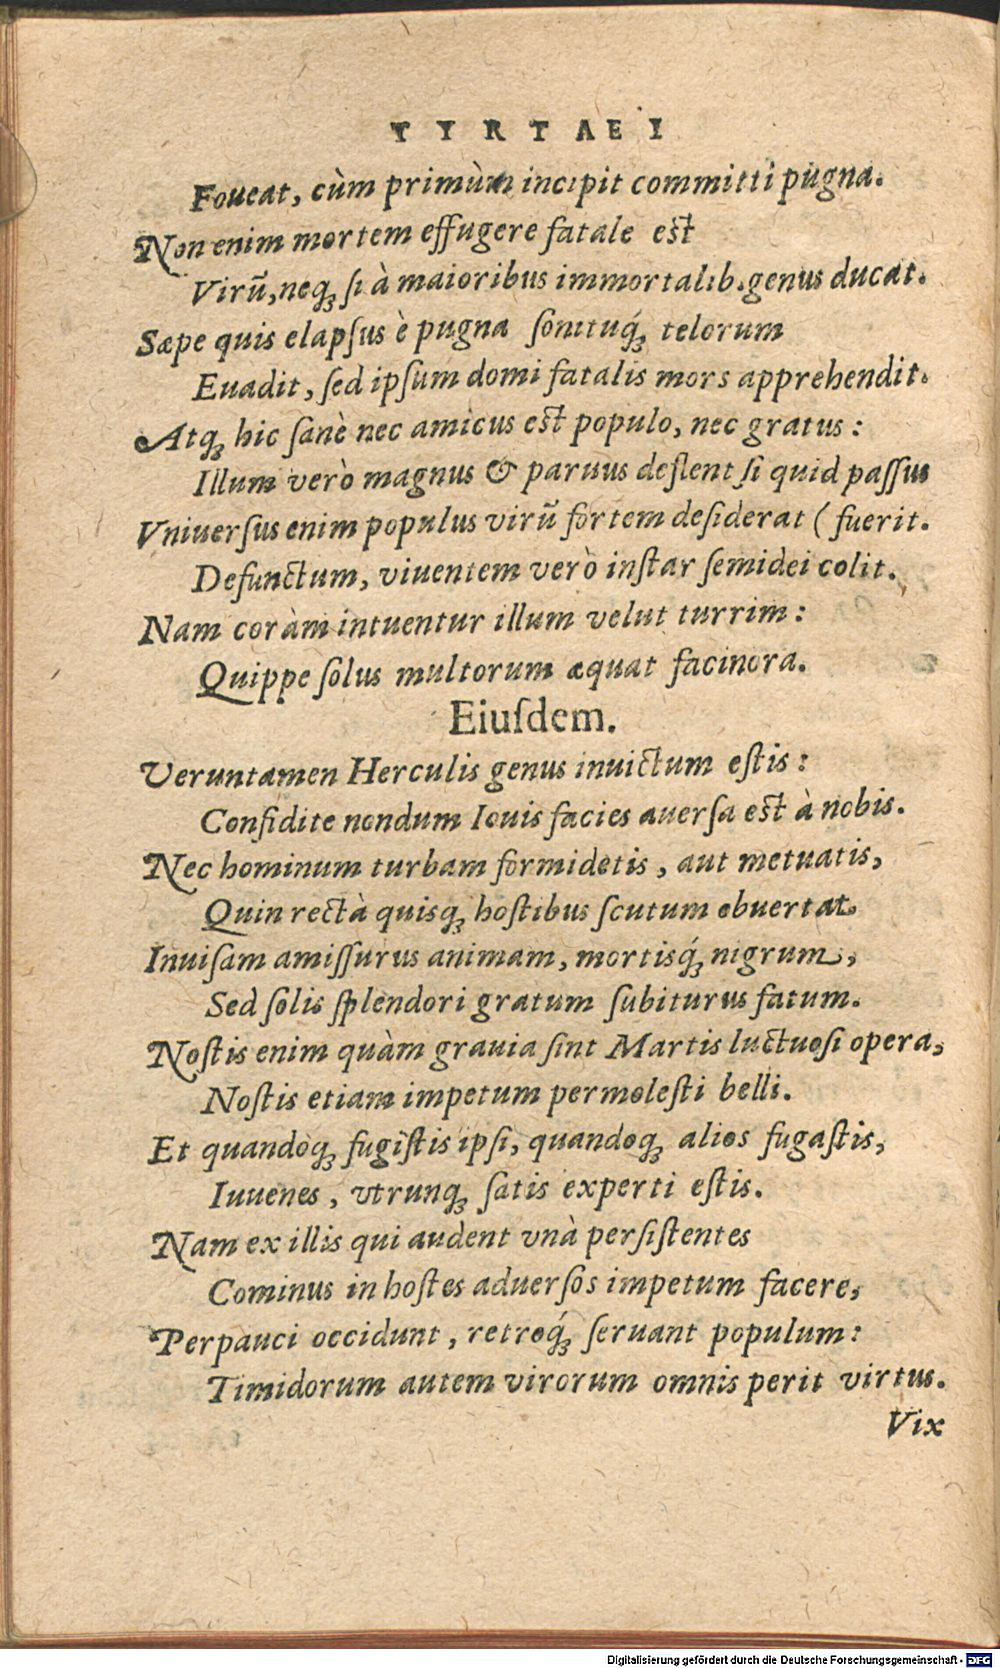 TYRTAEI
Foueat, cùm primùm incipit committi pugna.
Non enim mortem effugere fatale est
Virũ, neq; si à maioribus immortalib. genus ducat.
Sæpe quis elapſus è pugna ſonituq́; telorum
Euadit, ſed ipſum domi fatalis mors apprehendit.
Atq; hic ſanè nec amicus est populo, nec gratus:
Illum verò magnus & paruus deflent ſi quid paſſus
Vniuerſus enim populus virũ fortem deſiderat (fuerit.
Defunctum, viuentem verò inſtar ſemidei colit.
Nam coràm intuentur illum velut turrim:
Quippe ſolus multorum æquat facinora.
Eiuſdem.
Veruntamen Herculis genus inuictum eſtis:
Confidite nondum Iouis facies auerſa est à nobis.
Nec hominum turbam formidetis, aut metuatis,
Quin rectà quisq; hoſtibus ſcutum obuertat.
Inuiſam amiſſurus animam, mortisq́; nigrum,
Sed ſolis ſplendori gratum ſubiturus fatum.
Noſtis enim quàm grauia ſint Martis luctuoſi opera,
Noſtis etiam impetum permoleſti belli.
Et quandoq; fugiſtis ipſi, quandoq; alios fugaſtis,
Iuuenes, vtrunq; ſatis experti eſtis.
Nam ex illis qui audent vnà perſiſtentes
Cominus in hoſtes aduerſos impetum facere,
Perpauci occidunt, retroq́; ſeruant populum:
Timidorum autem virorum omnis perit virtus.
Vix
Digitalisierung gefördert durch die Deutsche Forschungsgemeinschaft - DFG